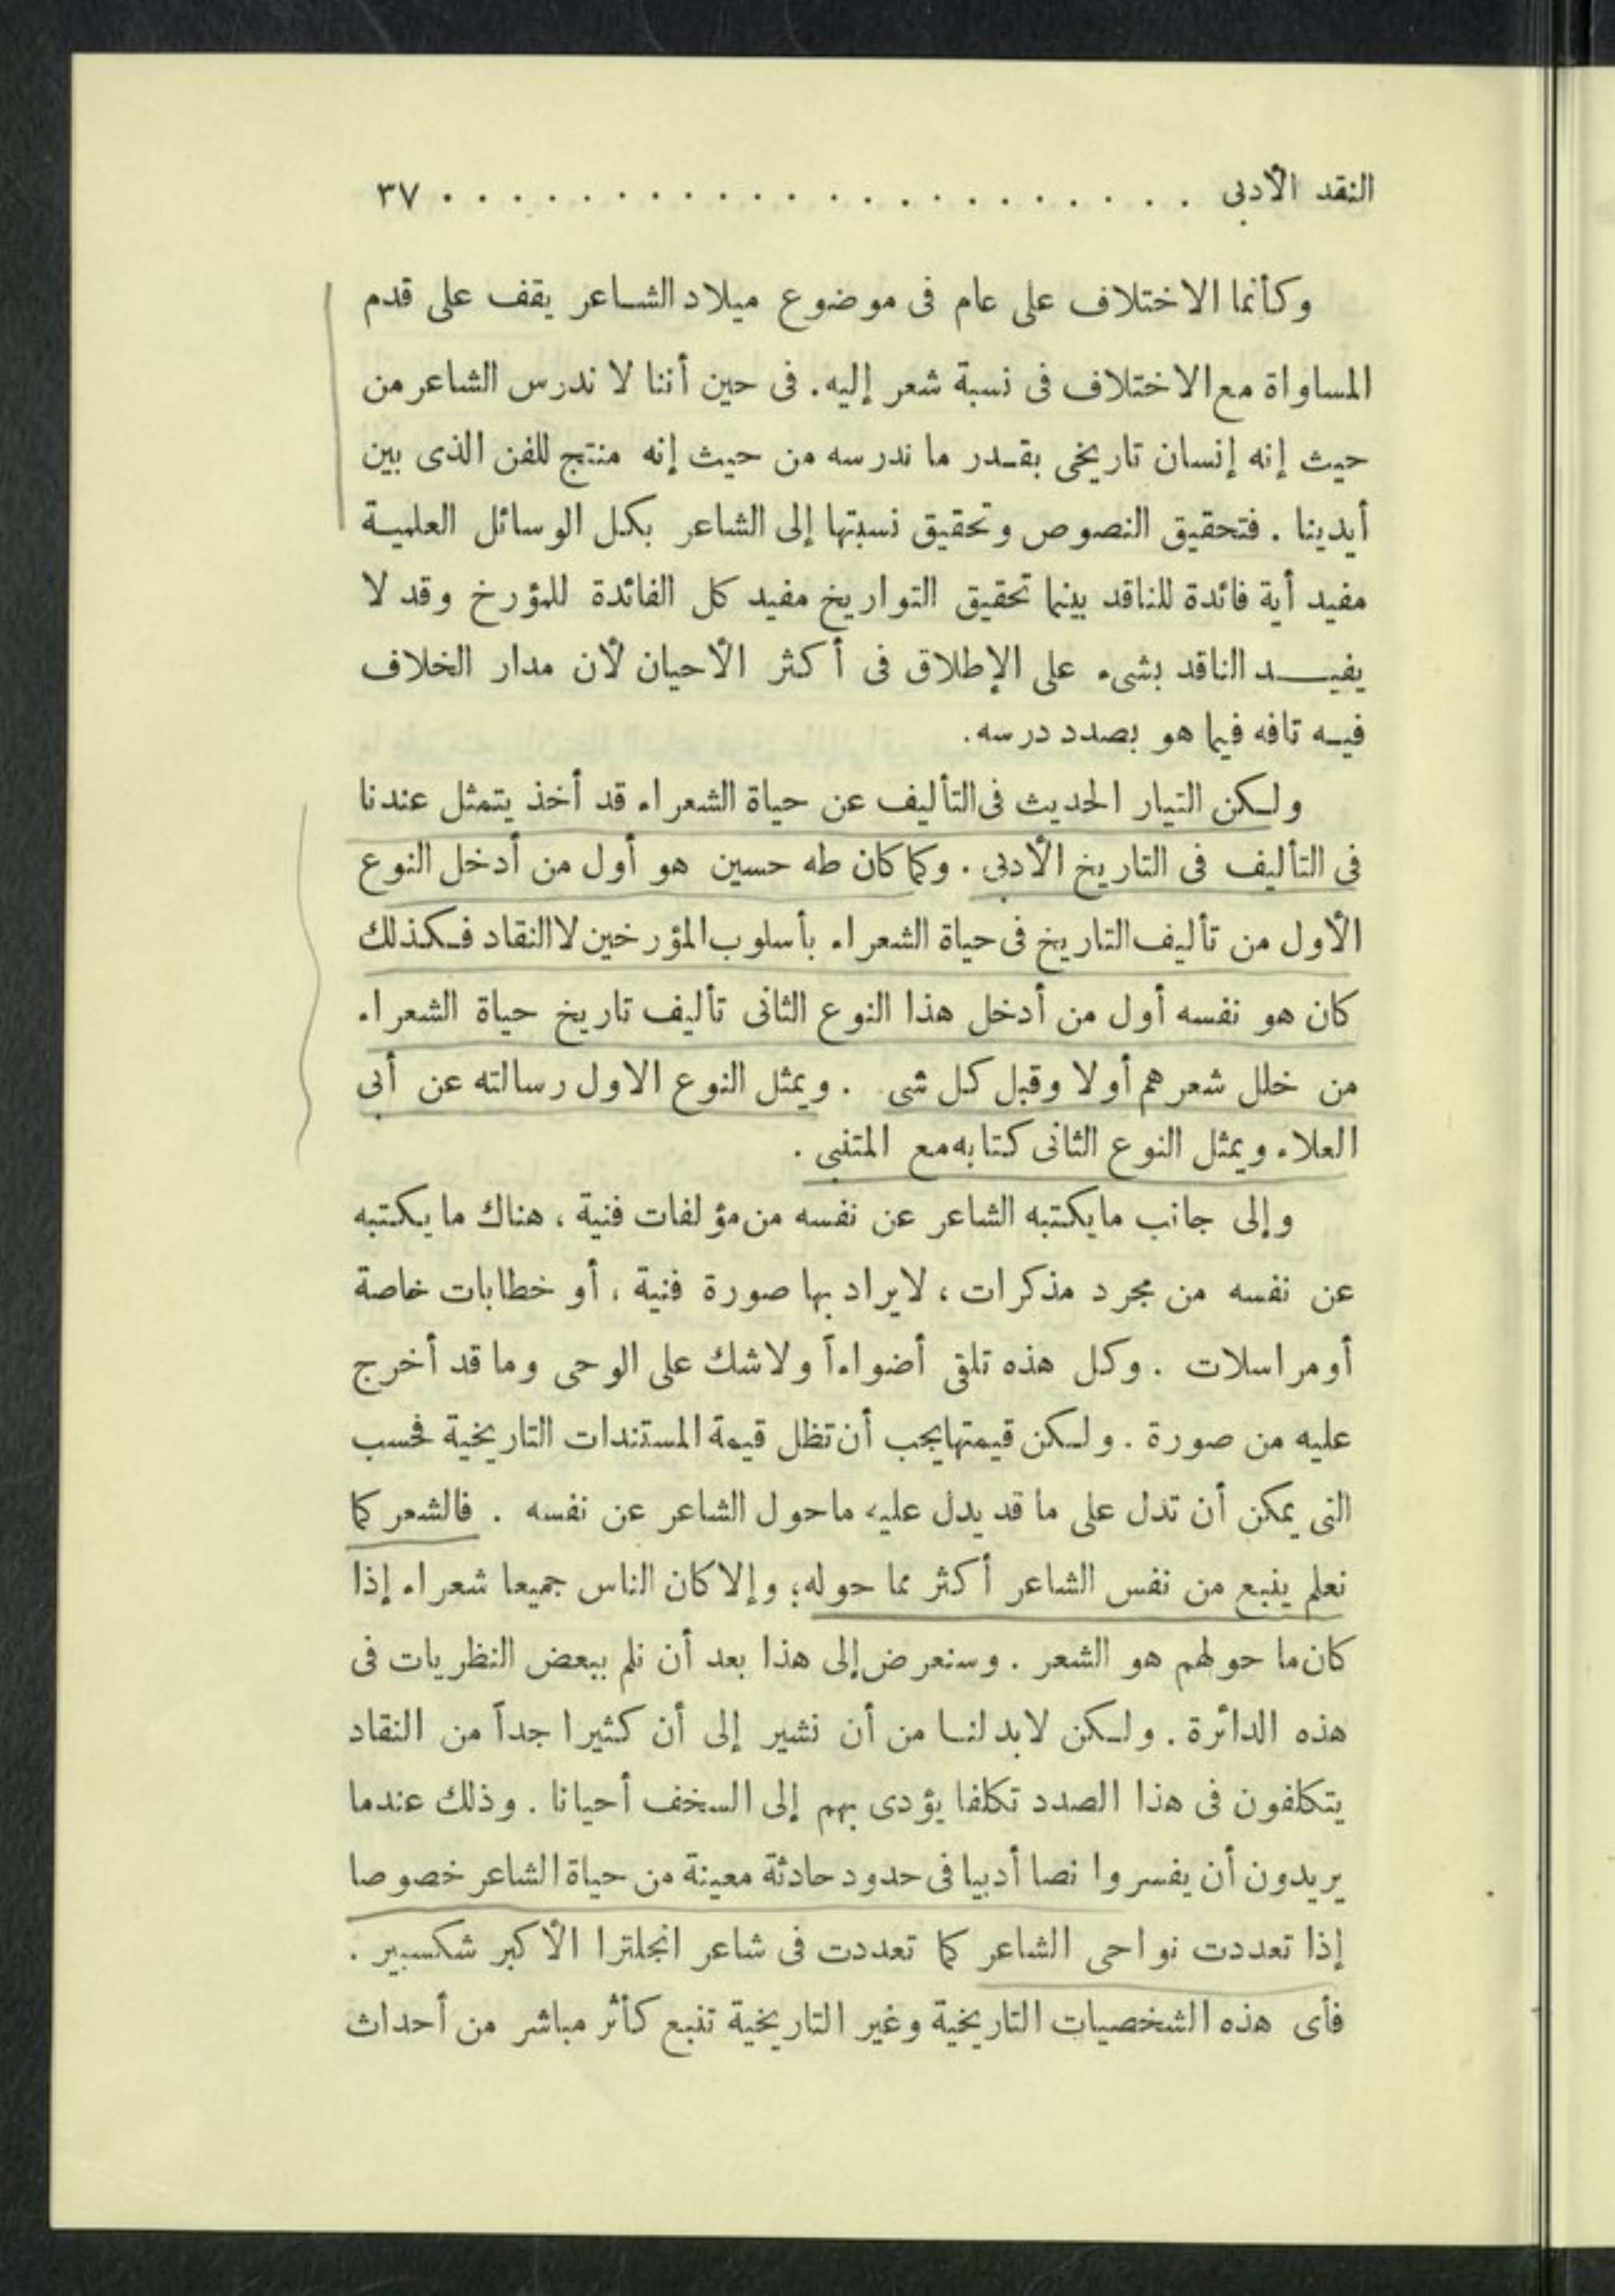 النقد الأدبى . . . . . . . . . . . . . . . . . . . . . . ٣٧
وكأنما الاختلاف على عام فى موضوع ميلاد الشاعر يقف على قدم
المساواة مع الاختلاف فى نسبة شعر إليه. فى حين أننا لا ندرس الشاعر من
حيث إنه إنسان تاريخى بقدر ما ندرسه من حيث إنه منتج للفن الذى بين
أيدينا . فتحقيق النصوص وتحقيق نسبتها إلى الشاعر بكل الوسائل العلمية
مفيد أية فائدة للناقد بينما تحقيق التواريخ مفيد كل الفائدة للمؤرخ وقد لا
يفيد الناقد بشىء على الإطلاق فى أكثر الأحيان لأن مدار الخلاف
فيه تافه فيما هو بصدد درسه.
ولكن التيار الحديث فى التأليف عن حياة الشعراء قد أخذ يتمثل عندنا
فى التأليف فى التاريخ الأدبى . وكما كان طه حسين هو أول من أدخل النوع
الأول من تأليف التاريخ فى حياة الشعراء بأسلوب المؤرخين لا النقاد فكذلك
كان هو نفسه أول من أدخل هذا النوع الثانى تأليف تاريخ حياة الشعراء
من خلل شعرهم أولا وقبل كل شى . ويمثل النوع الاول رسالته عن أبى
العلاء ويمثل النوع الثانى كتابه مع المتنبى .
وإلى جانب ما يكتبه الشاعر عن نفسه من مؤلفات فنية ، هناك ما يكتبه
عن نفسه من مجرد مذكرات ، لا يراد بها صورة فنية ، أو خطابات خاصة
أو مراسلات . وكل هذه تلقى أضواءاً ولا شك على الوحى وما قد أخرج
عليه من صورة . ولكن قيمتها يجب أن تظل قيمة المستندات التاريخية فحسب
التى يمكن أن تدل على ما قد يدل عليه ما حول الشاعر عن نفسه . فالشعر كما
نعلم ينبع من نفس الشاعر أكثر مما حوله؛ وإلا كان الناس جميعا شعراء إذا
كان ما حولهم هو الشعر . وسنعرض إلى هذا بعد أن نلم ببعض النظريات فى
هذه الدائرة . ولكن لابد لنا من أن نشير إلى أن كثيرا جداً من النقاد
يتكلفون فى هذا الصدد تكلفا يؤدى بهم إلى السخف أحيانا . وذلك عندما
يريدون أن يفسروا نصا أدبيا فى حدود حادثة معينة من حياة الشاعر خصوصا
إذا تعددت نواحى الشاعر كما تعددت فى شاعر انجلترا الأكبر شكسبير .
فأى هذه الشخصيات التاريخية وغير التاريخية تنبع كأثر مباشر من أحداث